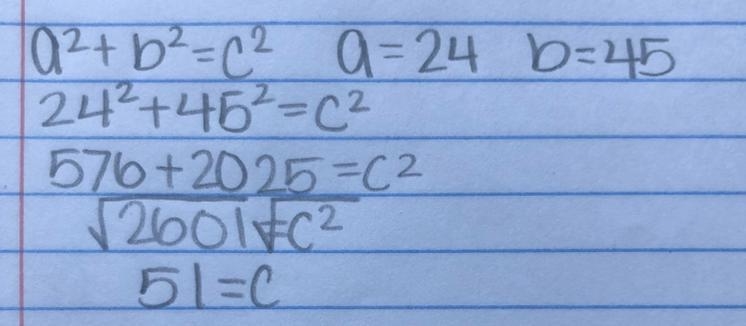 a²+b²=c² a=24 b=45
24²+45²=c²
576+2025=c²
√2601=√c²
51=c